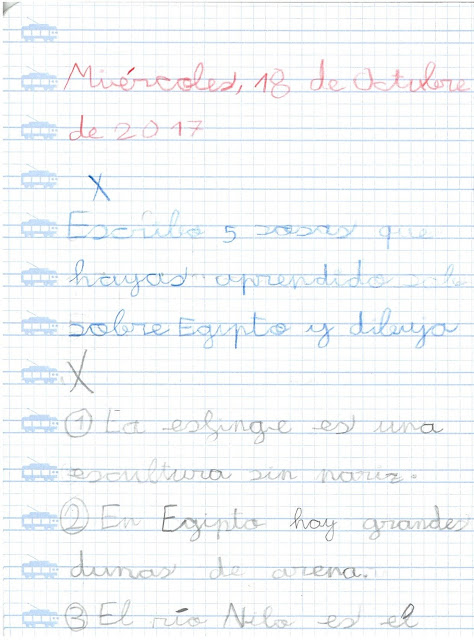 Miércoles, 18 de Octubre
de 2017
X
Escribo 5 sosas que
hayas aprendido sob
sobre Egipto y dibuja
X
① La esfinge es una
escultura sin nariz.
② En Egipto hay grandes
dunas de arena.
③ El río Nilo es el